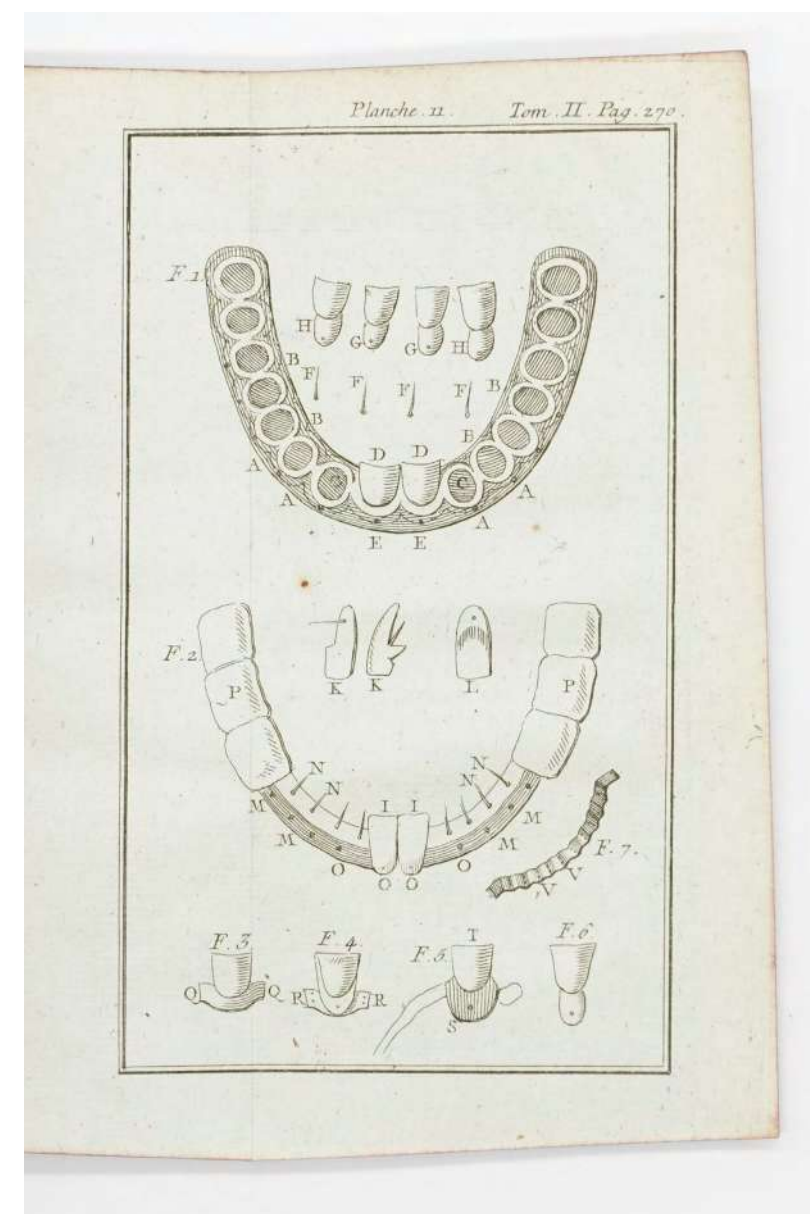 Planche . 11 . Tom . II . Pag . 270 .
F. 1.
H G G H
F F F F
B B
B B
D D
A C A
A A
E E
F. 2.
K K L
P P
N N N N
I I
M M
M M
O O O O
F. 7.
V V
F. 3 F. 4. F. 5. T F. 6
Q Q R R
S